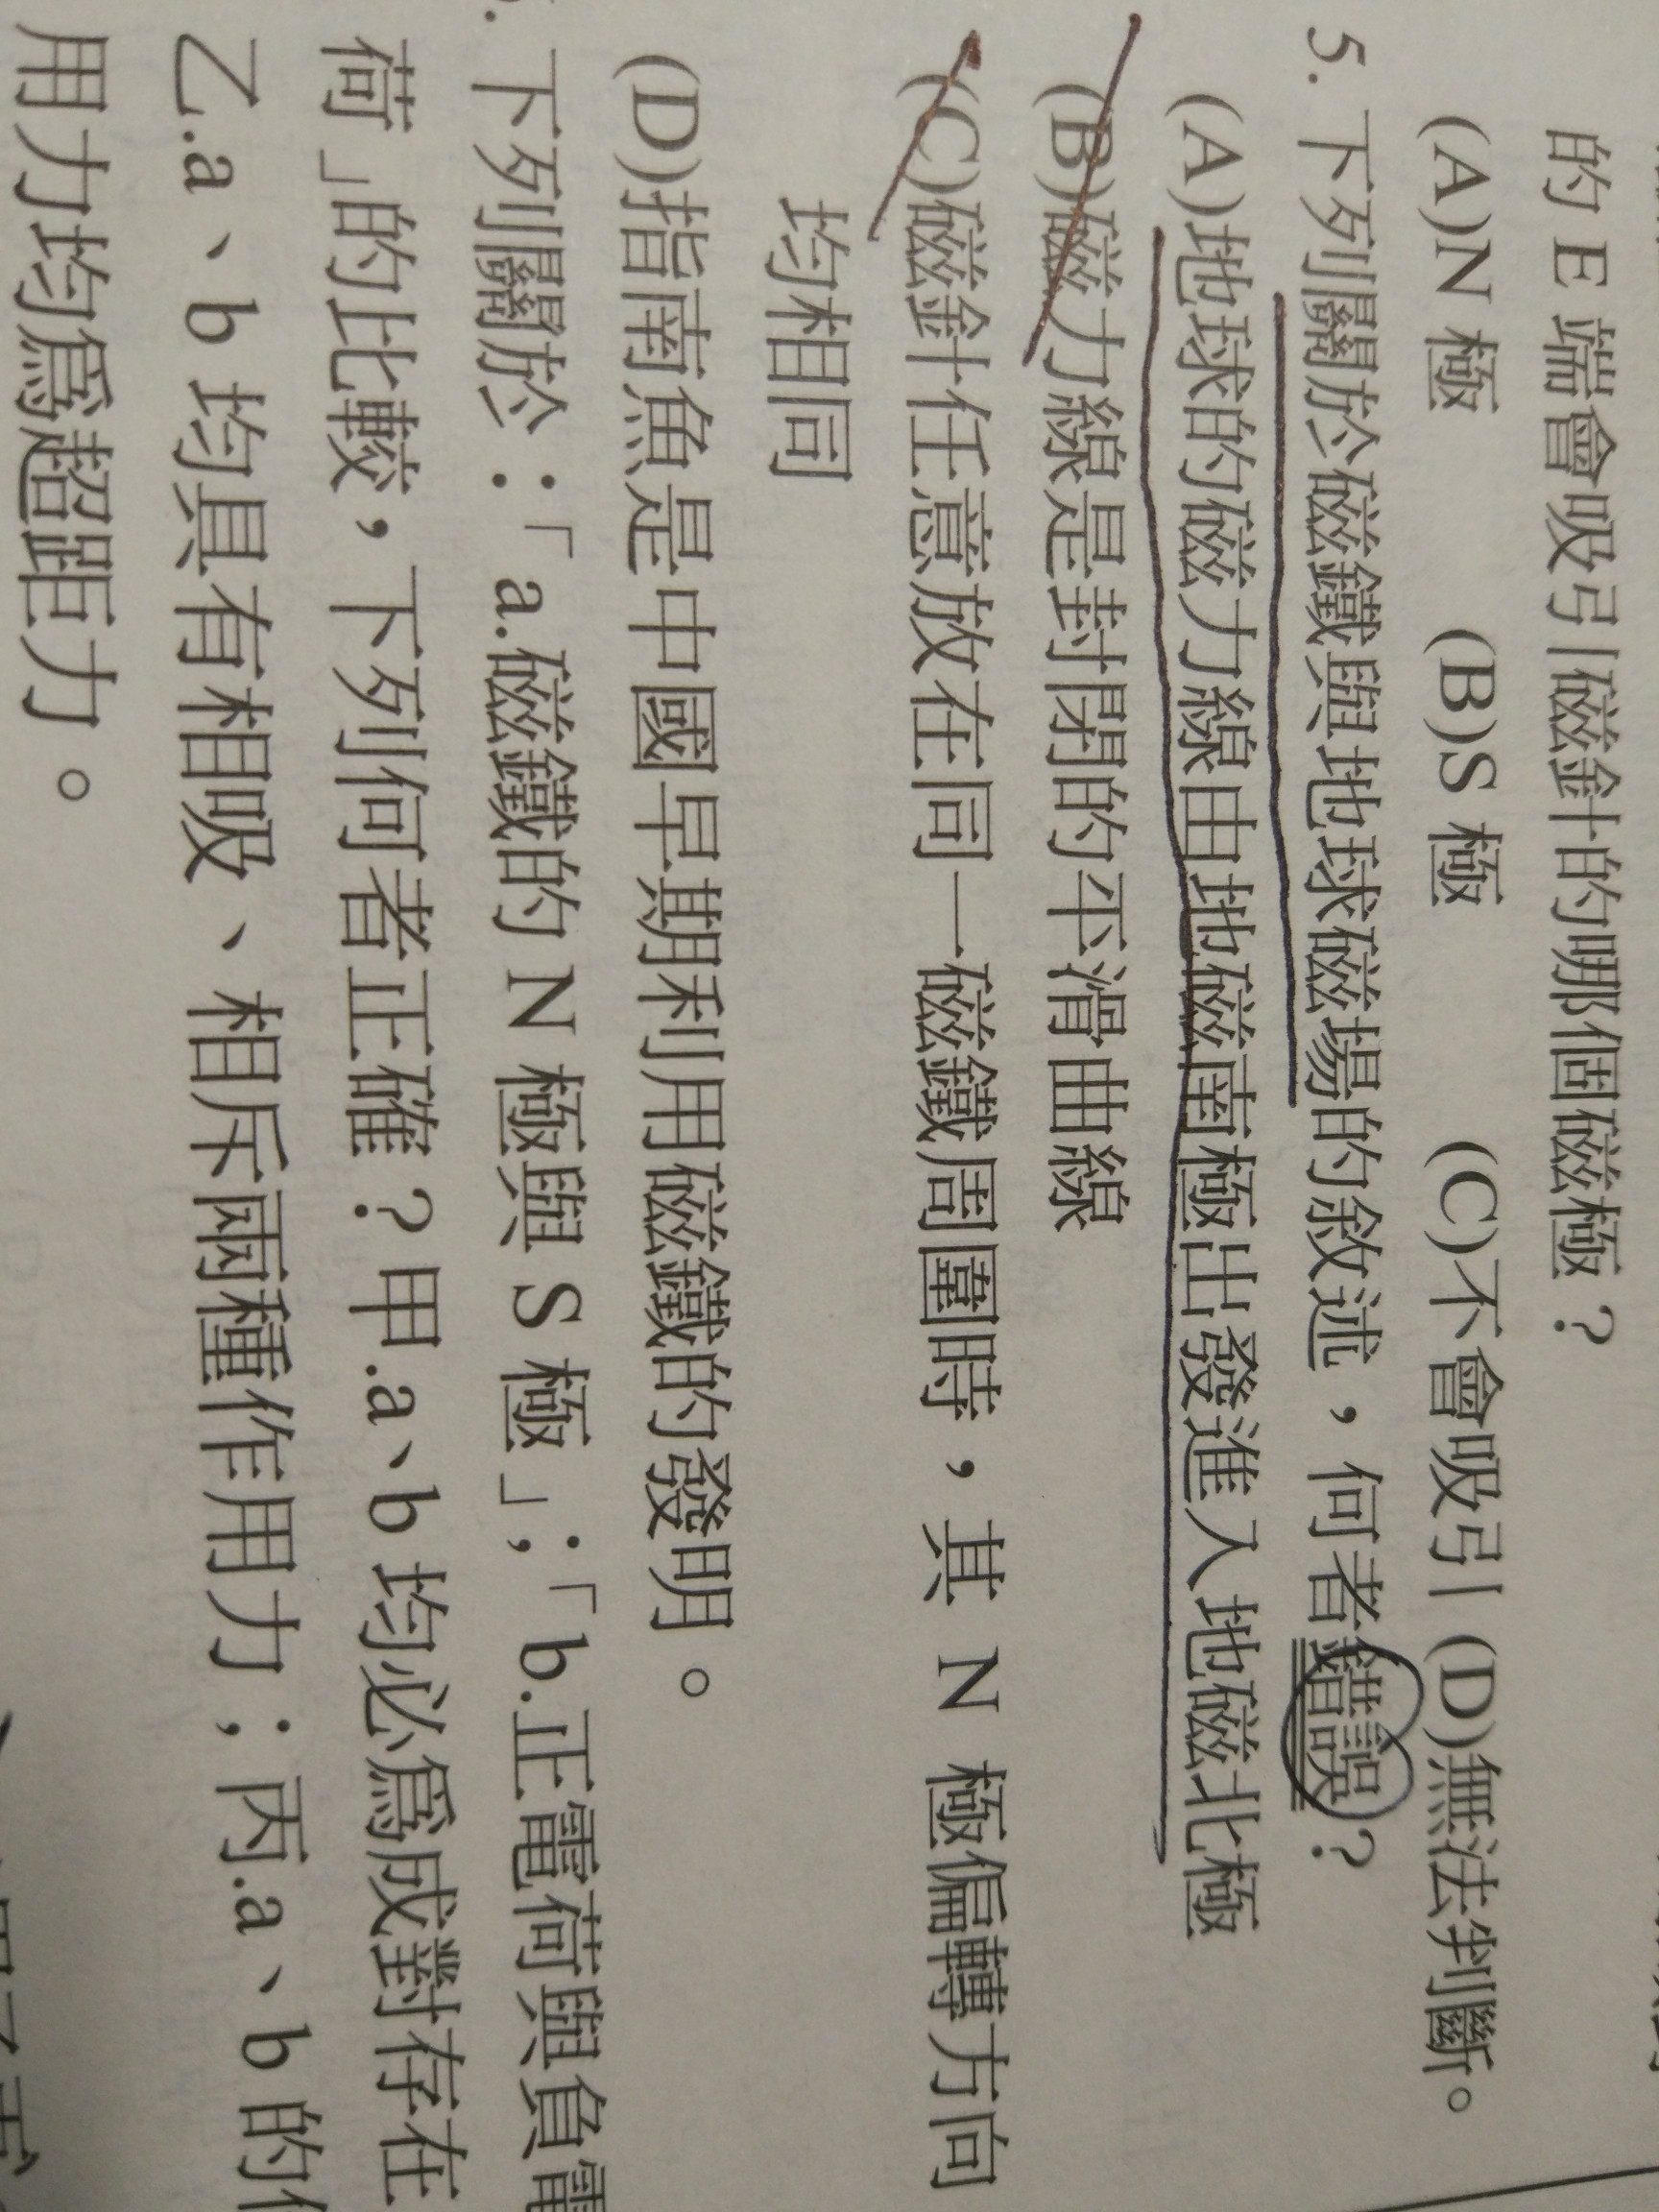 的 E 端會吸引磁針的哪個磁極？
(A)N 極 (B)S 極 (C)不會吸引 (D)無法判斷。
5. 下列關於磁鐵與地球磁場的敘述，何者錯誤？
(A)地球的磁力線由地磁南極出發進入地磁北極
(B)磁力線是封閉的平滑曲線
(C)磁針任意放在同一磁鐵周圍時，其 N 極偏轉方向
均相同
(D)指南魚是中國早期利用磁鐵的發明。
下列關於：「a.磁鐵的 N 極與 S 極」；「b.正電荷與負電
荷」的比較，下列何者正確？甲.a、b 均必為成對存在
乙.a、b 均具有相吸、相斥兩種作用力；丙.a、b 的
用力均為超距力。